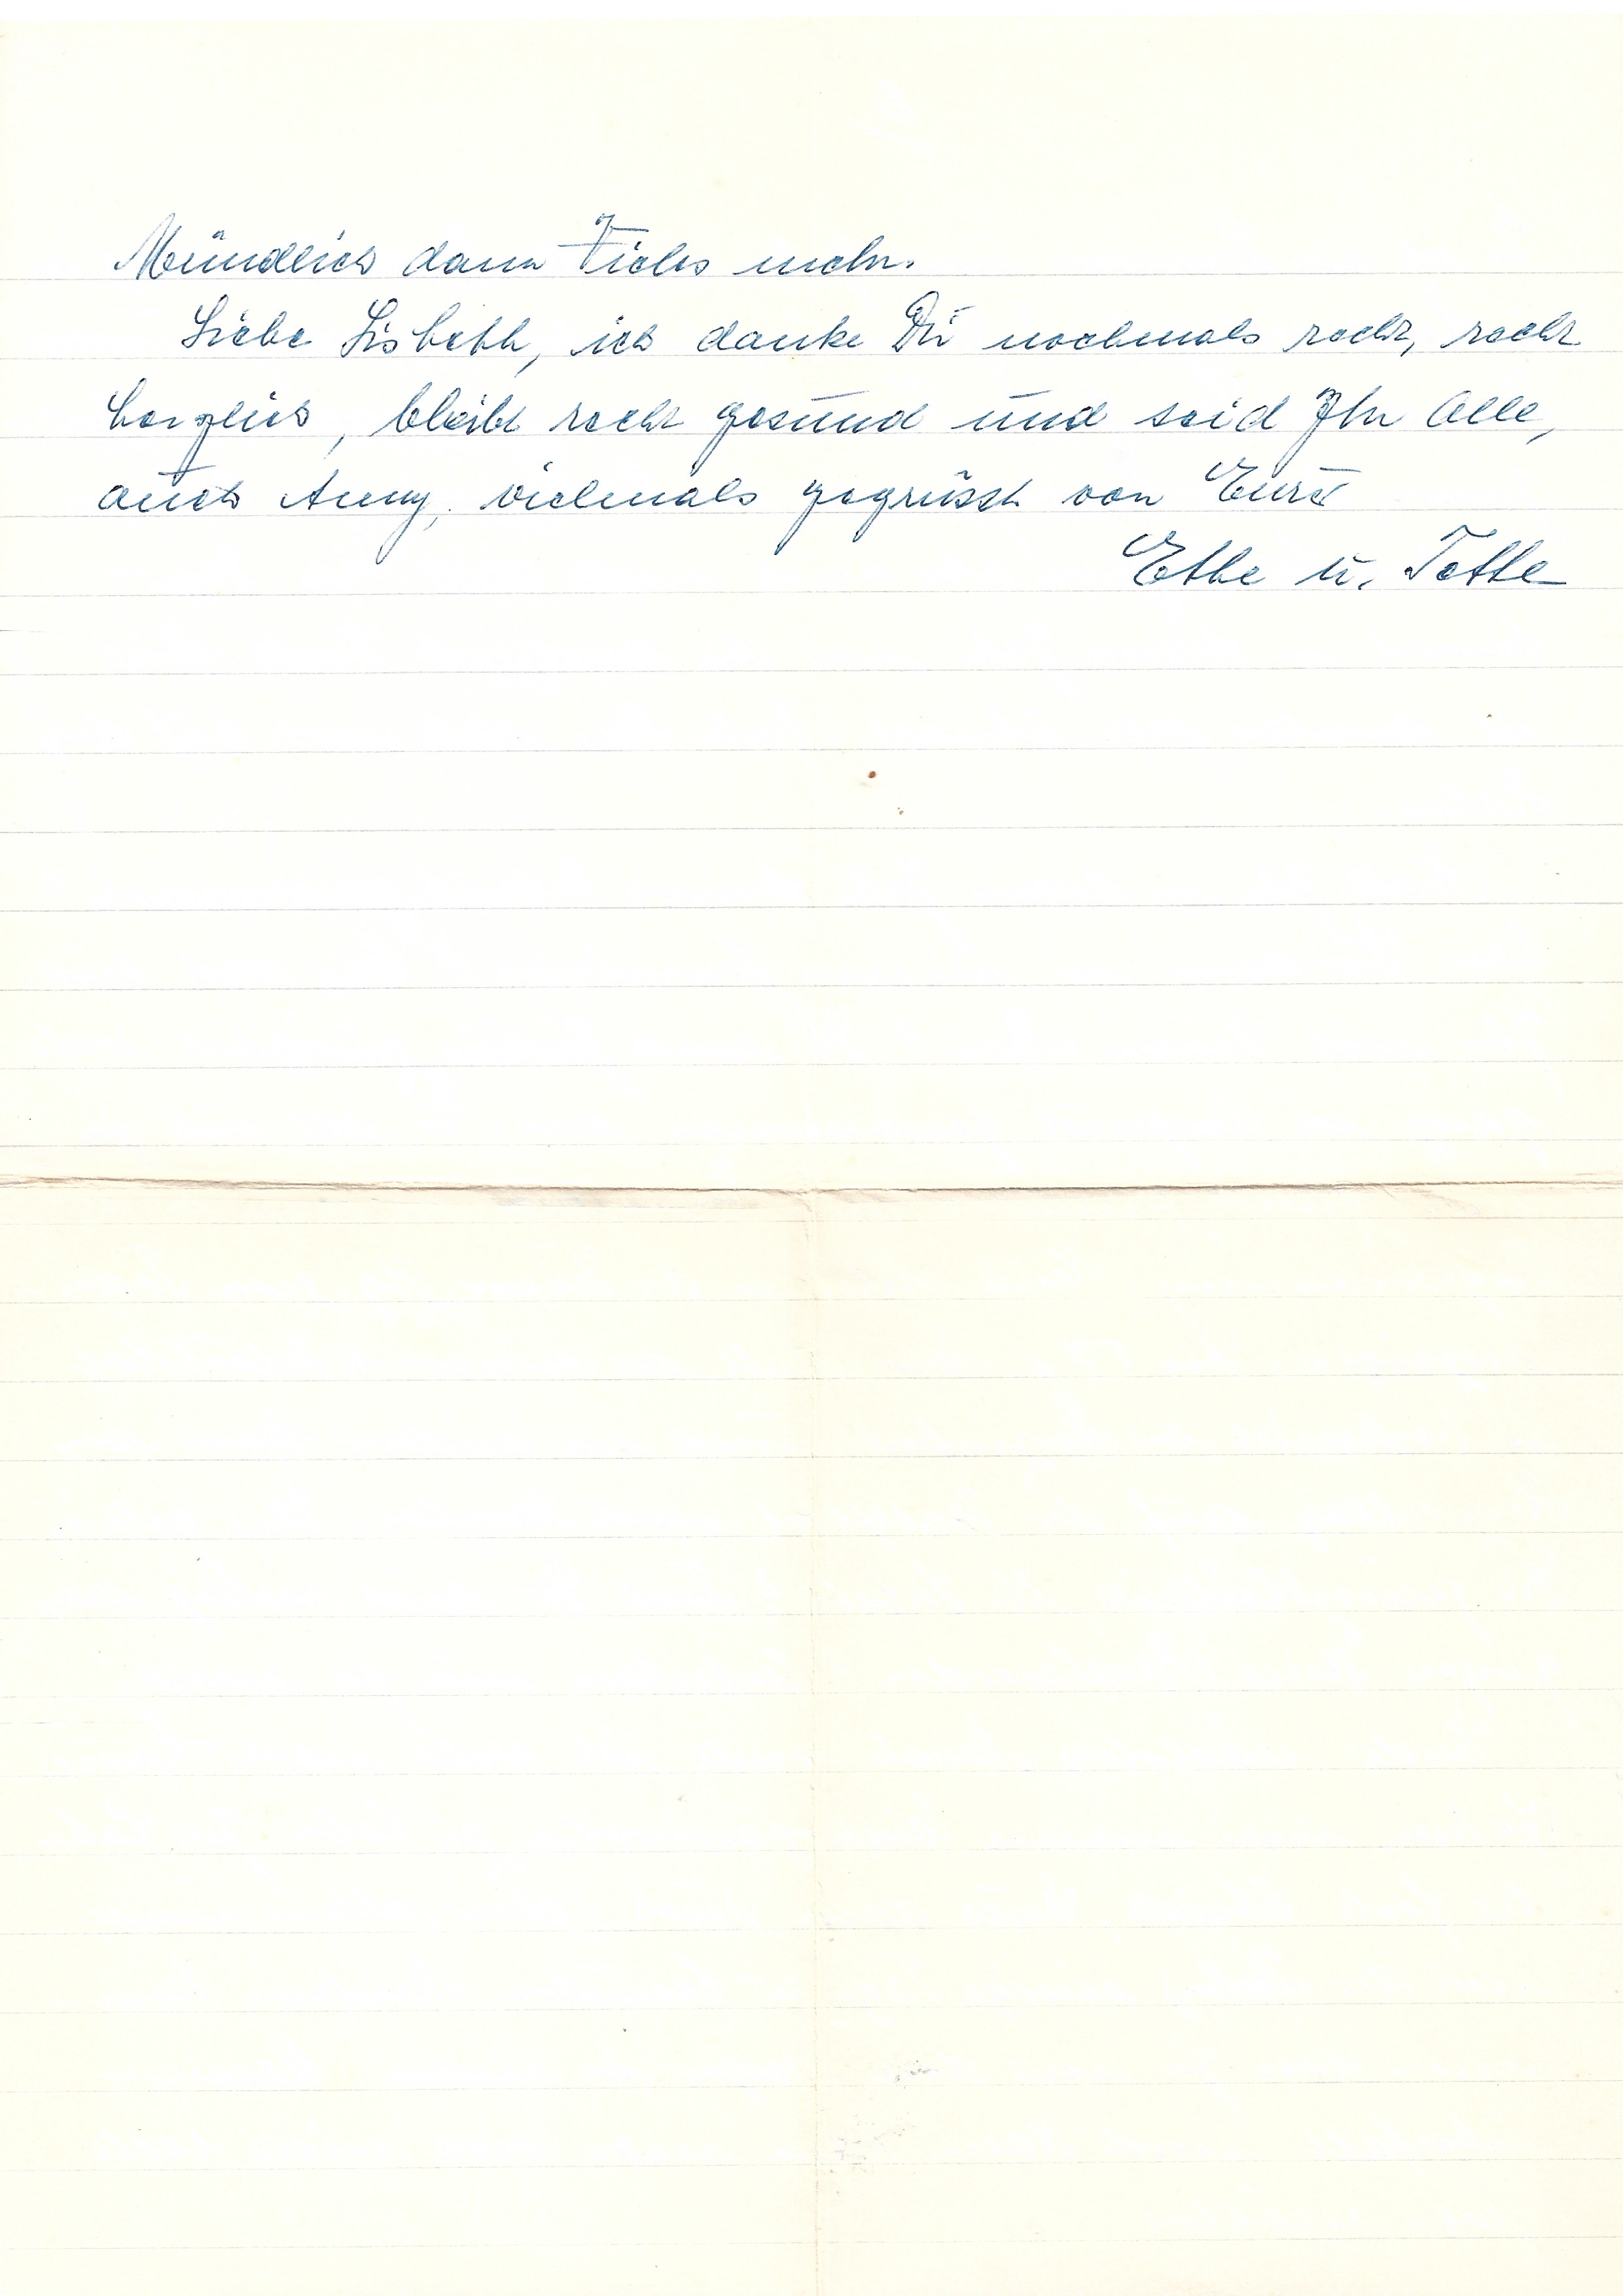 Mündlich dann Vieles mehr.
Liebe Lisbeth, ich danke Dir nochmals recht, recht
herzlich, bleibt recht gesund und seid Ihr Alle,
auch Anny, vielmals gegrüsst von Eure
Ethe u. Totte